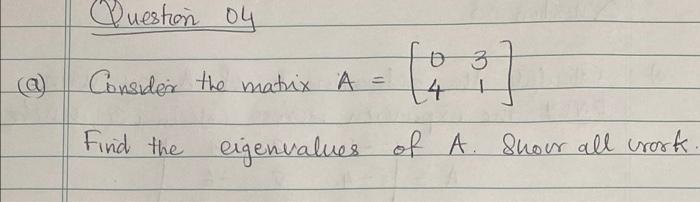 Question 04
(a) Consider the matrix A = [0 3
4 1]
Find the eigenvalues of A. Show all work.